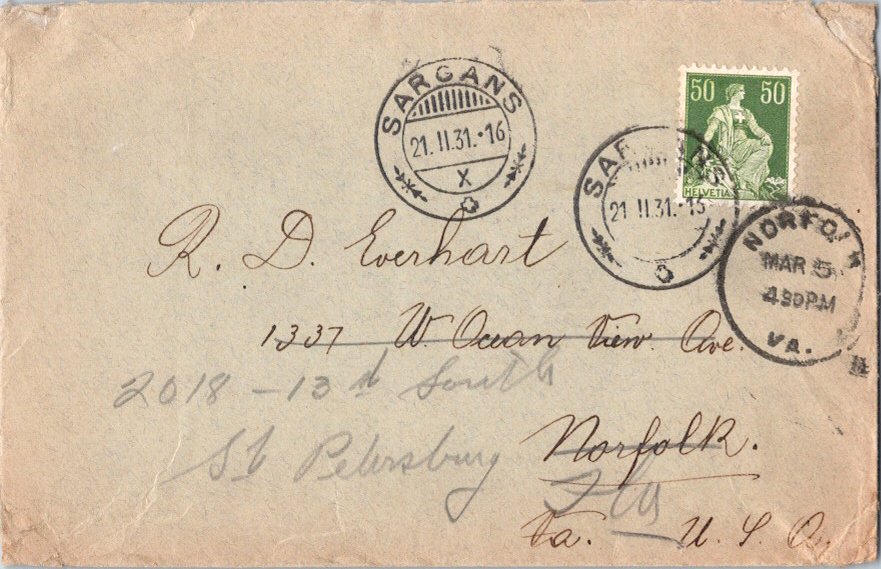 SARGANS
21. II. 31. • 16
X
50 50
HELVETIA
SARGANS
21 II. 31.
NORFOLK
MAR 5
4 30 PM
VA.
R. D. Everhart
1337 W. Ocean View Ave.
2018 - 13 th South
Norfolk.
St Petersburg
Fla
Va. U. S. A.